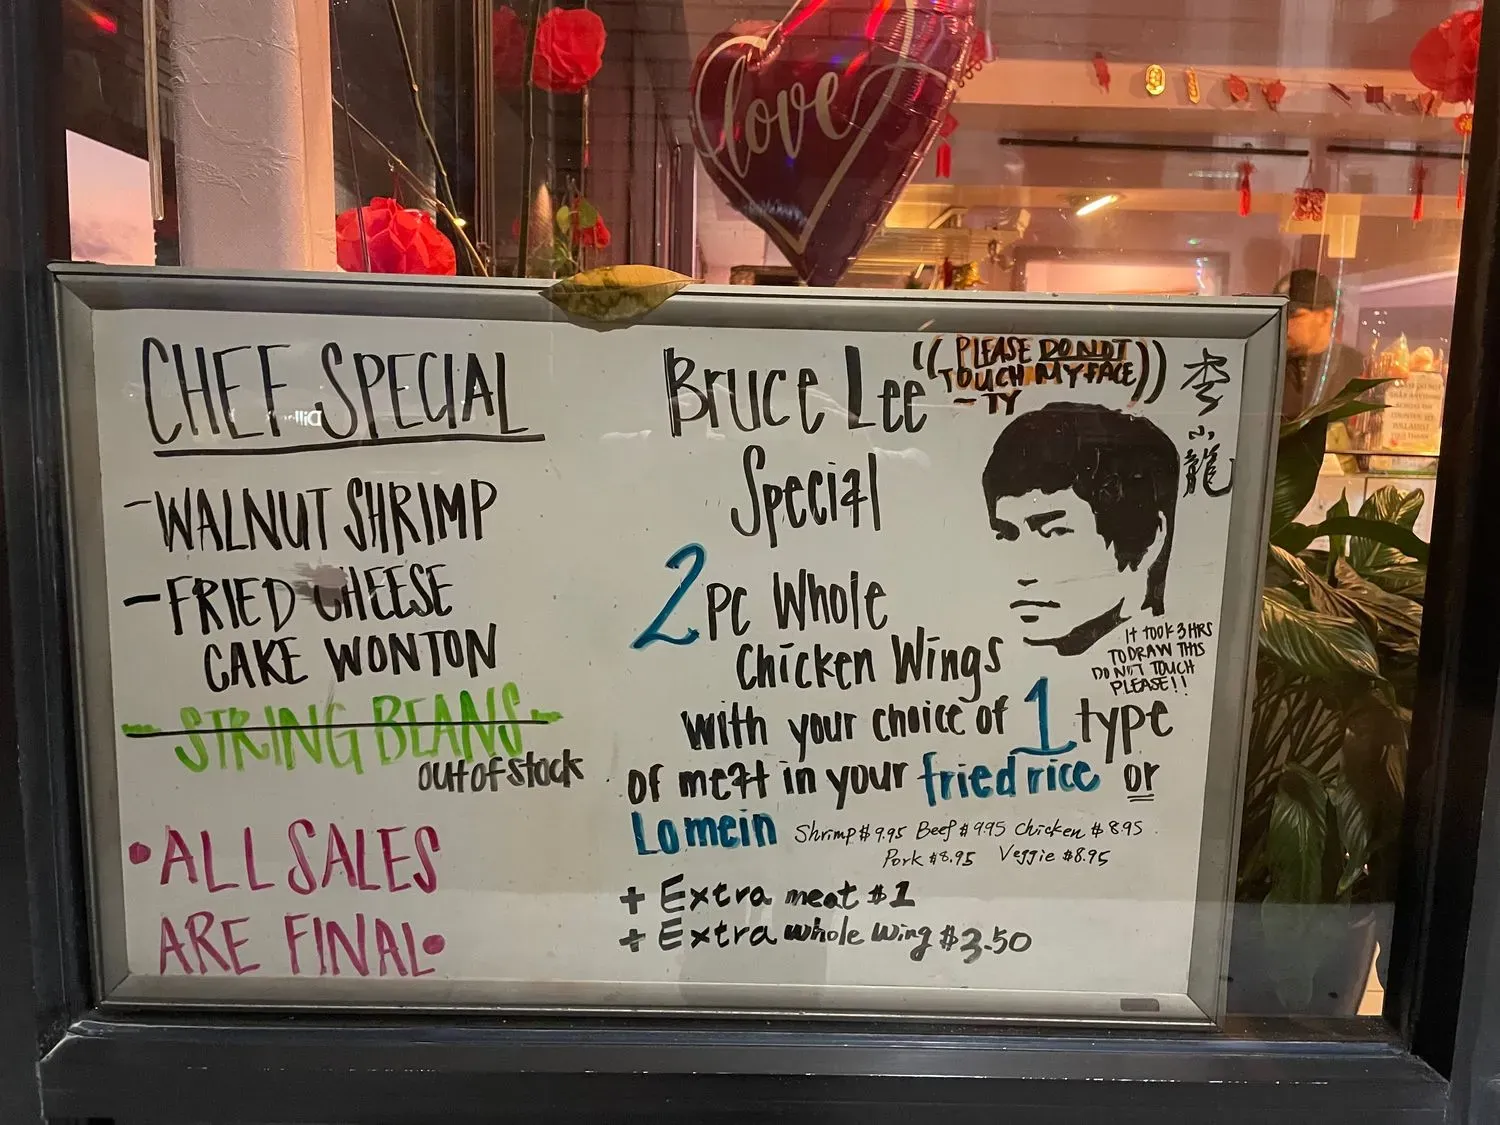 love
CHEF SPECIAL
-WALNUT SHRIMP
-FRIED CHEESE
CAKE WONTON
- STRING BEANS -
out of stock
• ALL SALES
ARE FINAL •
Bruce Lee
Special
2 pc Whole
Chicken Wings
with your choice of 1 type
of meat in your fried rice or
Lo mein Shrimp $9.95 Beef $9.95 Chicken $8.95
Pork $8.95 Veggie $8.95
+ Extra meat $1
+ Extra whole wing $3.50
((PLEASE DO NOT
TOUCH MY FACE))
- TY
李小龍
IT TOOK 3 HRS
TO DRAW THIS
DO NOT TOUCH
PLEASE!!